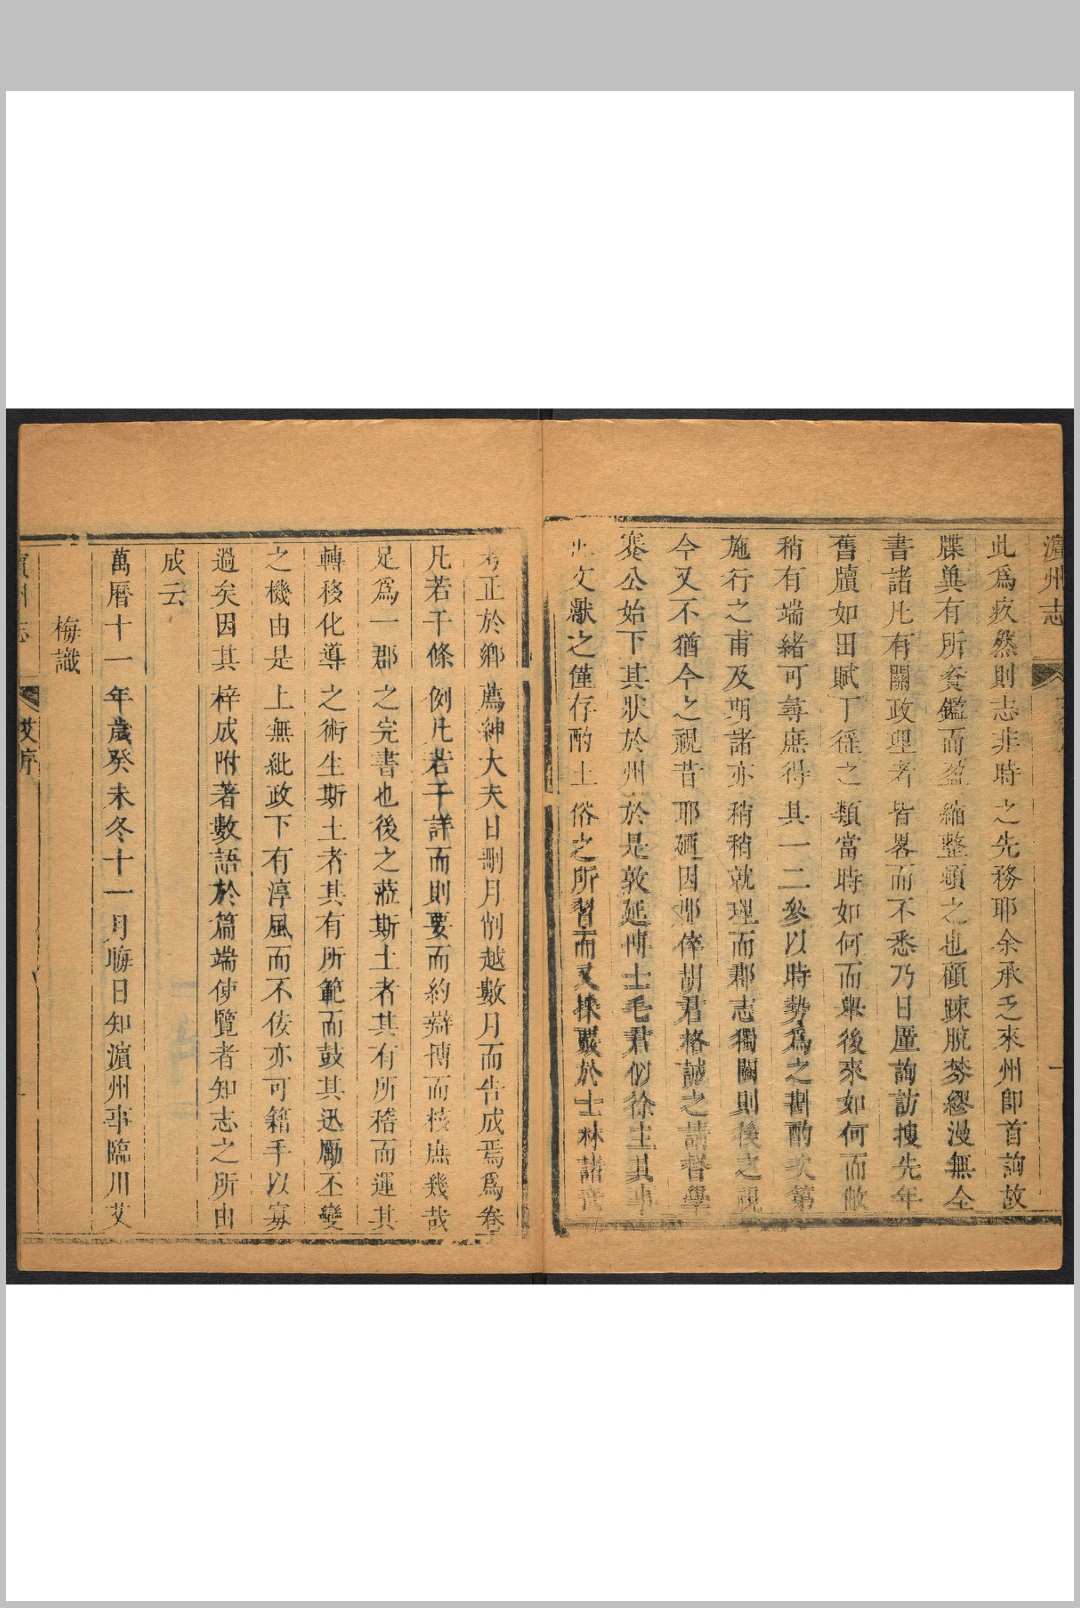 濵州志
此爲疚然則志非時之先務耶余承乏來州即首詢故
牒兾有所資鑑而盈縮整頓之也顧踈脫棼繆漫無全
書諸凡有關政理者皆畧而不悉乃日厪詢訪捜先年
舊牘如田賦丁徭之類當時如何而舉後來如何而敝
稍有端緒可尋庶得其一二參以時勢爲之斟酌次第
施行之甫及朞諸亦稍稍就理而郡志獨闕則後之視
今又不猶今之視昔耶廼因郡倅胡君格誠之請督學
蹇公始下其狀於州於是敦延博士毛君似徐主其事
文獻之僅存酌土俗之所習而又採藂於士林諸
考正於鄉薦紳大夫日刪月削越數月而告成焉爲卷
凡若干條例凡若干詳而則要而約辯博而核庶幾哉
足爲一郡之完書也後之蒞斯土者其有所稽而運其
轉移化導之術生斯土者其有所範而鼓其迅勵丕變
之機由是上無紕政下有淳風而不佞亦可籍手以寡
過矣因其梓成附著數語於篇端使覽者知志之所由
成云
萬曆十一年歲癸未冬十一月晦日知濵州事臨川艾
梅識
濵州志 艾序